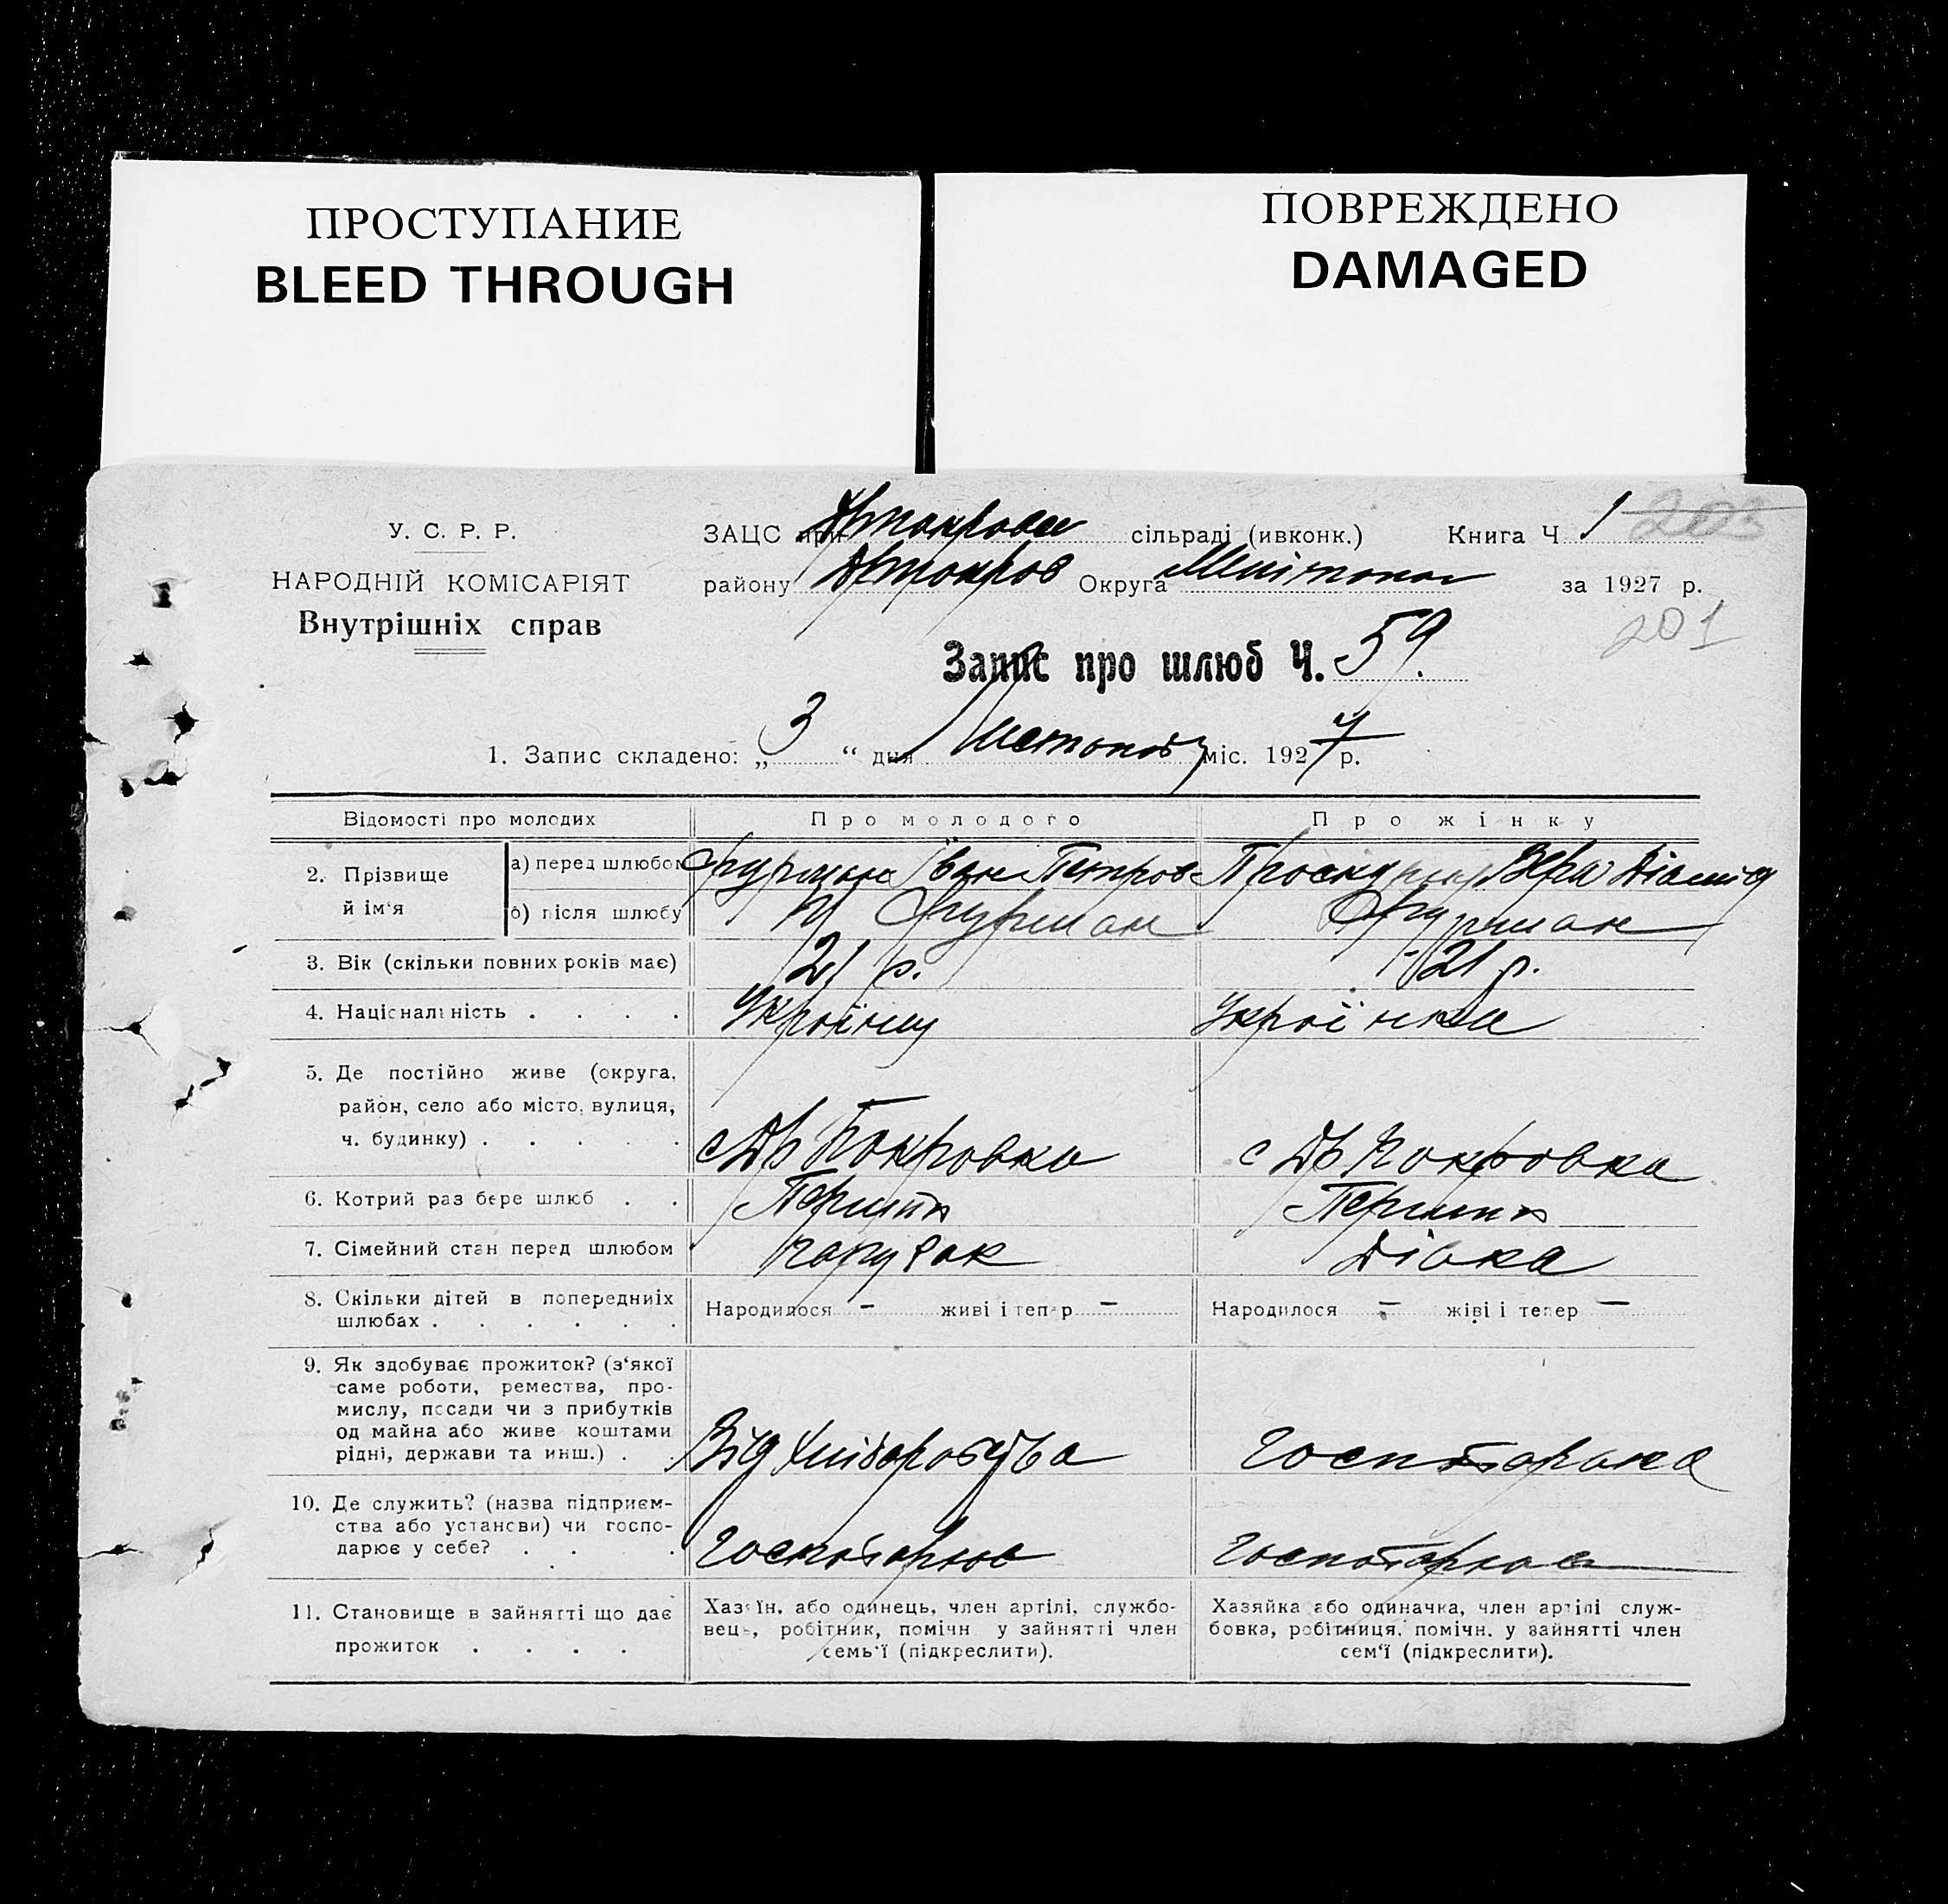 ПРОСТУПАНИЕ
BLEED THROUGH
ПОВРЕЖДЕНО
DAMAGED
У. С. Р. Р.
НАРОДНІЙ КОМІСАРІЯТ
Внутрішніх справ
ЗАЦС при сільраді (ивконк.) Книга Ч 1 203
району Округа за 1927 р.
201
Запис про шлюб Ч. 59.
1. Запис складено: „ 3 “ дня міс. 1927 р.
Відомості про молодих
Про молодого
Про жінку
2. Прізвище й ім'я
а) перед шлюбом
Фурман Іван Петров
Вера
б) після шлюбу
Фурман
Фурман
3. Вік (скільки повних років має)
21 р.
21 р.
4. Національність . . . .
Українец
Українка
5. Де постійно живе (округа,
район, село або місто, вулиця,
ч. будинку) . . . . .
с Дв Покровка
с Дв Покровка
6. Котрий раз бере шлюб . .
Перший
Перший
7. Сімейний стан перед шлюбом
парубок
Дівка
8. Скільки дітей в попередніх
шлюбах . . . . . .
Народилося – живі і тепер –
Народилося – жіві і тепер –
9. Як здобуває прожиток? (з‘якої
саме роботи, ремества, про-
мислу, посади чи з прибутків
од майна або живе коштами
рідні, держави та инш.) .
Від хліборобства
10. Де служить? (назва підприєм-
ства або установи) чи госпо-
дарює у себе? . . .
Господарює
Господарює
11. Становище в зайнятті що дає
прожиток . . . .
Хазяїн, або одинець, член артілі, службо-
вець, робітник, помічн. у зайнятті член
семь‘ї (підкреслити).
Хазяйка або одиначка, член артілі служ-
бовка, робітниця, помічн. у зайнятті член
сем‘ї (підкреслити).